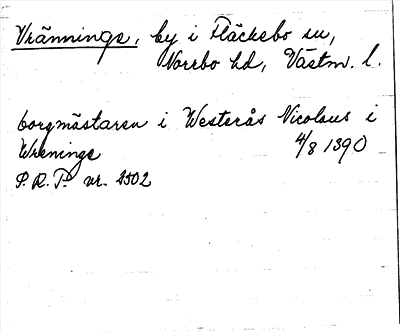 Vränninge, by i Fläckebo sn,
Norrbo hd, Västm. l.
borgmästaren i Westerås Nicolaus i
Wrenninge 4/8 1390
P.R.P. nr. 2502